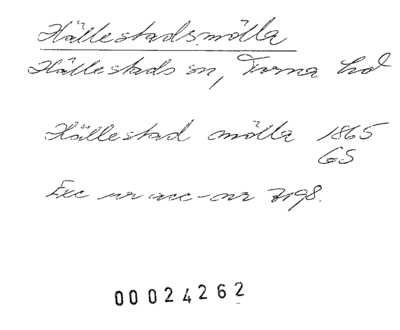 Hällestadsmölla
Hällestads sn, Torna hd
Hällestad mölla 1865
GS
Exc ur acc-nr 7198.
00024262